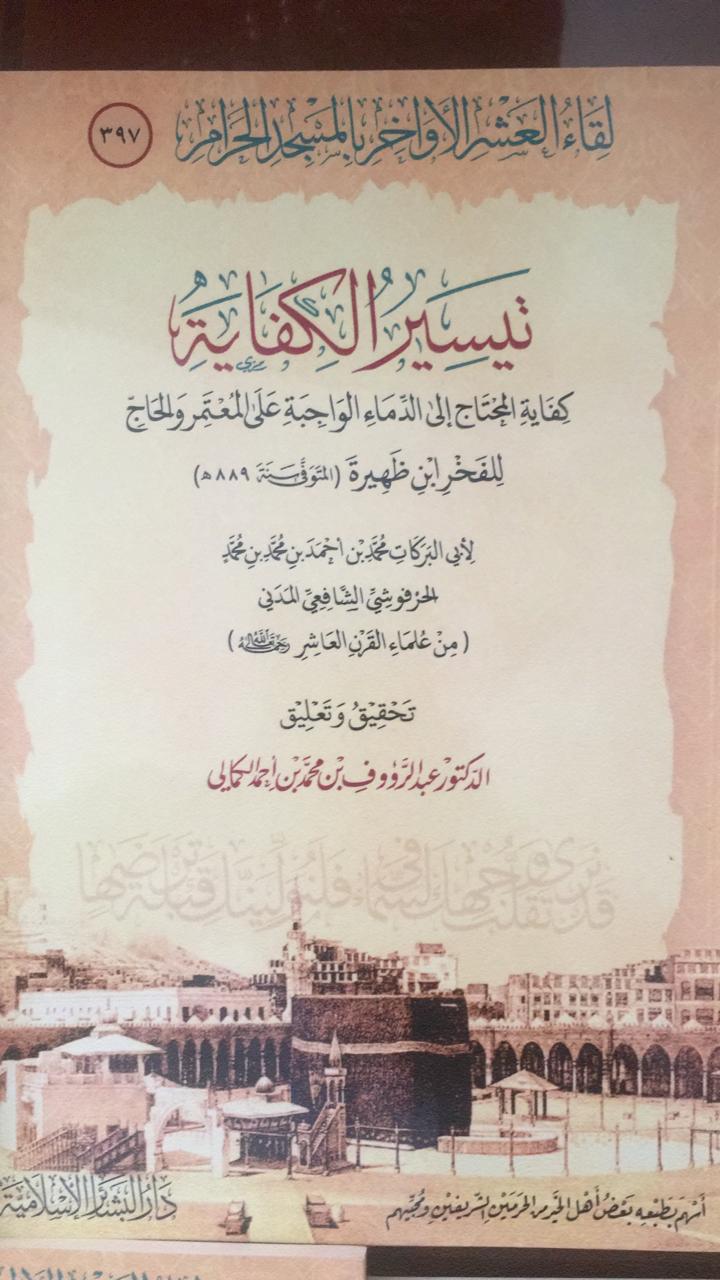 لِقَاءُ العَشْرِ الأَوَاخِرِ بِالمَسْجِدِ الحَرَامِ
٣٩٧
تَيْسِيرُ الكِفَايَةِ
كِفَايَةِ المُحْتَاجِ إِلَى الدِّمَاءِ الوَاجِبَةِ عَلَى المُعْتَمِرِ وَالحَاجِّ
لِلفَخْرِ ابْنِ ظَهِيرَةَ (المُتَوَفَّى سَنَةَ ٨٨٩هـ)
لِأَبِي البَرَكَاتِ مُحَمَّدِ بْنِ أَحْمَدَ بْنِ مُحَمَّدِ بْنِ مُحَمَّدٍ
الحَرْفُوشِيِّ الشَّافِعِيِّ المَدَنِي
(مِنْ عُلَمَاءِ القَرْنِ العَاشِرِ رَحِمَهُ اللَّهُ تَعَالَى)
تَحْقِيقُ وَتَعْلِيق
الدكتور عبد الرؤوف بن محمد بن أحمد الكمالي
قد نرى تقلب وجهك في السماء فلنولينك قبلة ترضىها
أَسْهَمَ بِطَبْعِهِ بَعْضُ أَهْلِ الخَيْرِ مِنَ الحَرَمَيْنِ الشَّرِيفَيْنِ وَمُحِبِّيهِم
دَارُ البَشَائِرِ الإِسْلَامِيَّة